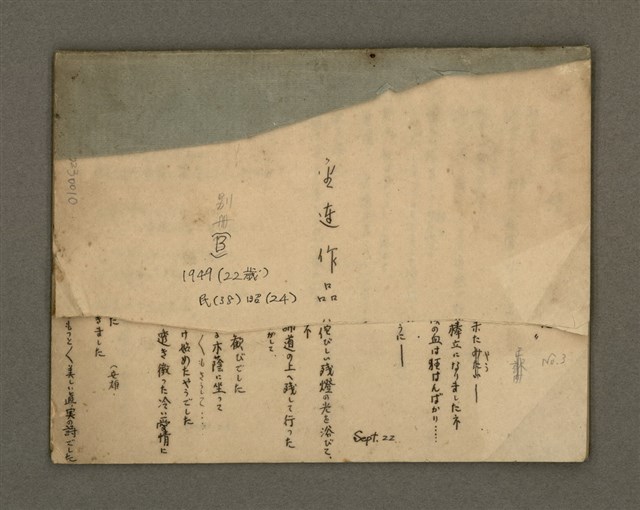 連作品
別冊
(B)
1949(22歳)
民(38) 昭(24)
230010
No.3
棒立になりましたネ
の血は狂はんばかり……
うに—
Sept. 22
侘びしい残燈の光を浴びて、
道の上へ残して行った
かして、
歓びでした
木陰に坐って
くもきらして…
け始めたやうでした
透き徹った冷い愛情に
た
ました
もつとく美しい真実の詩でした